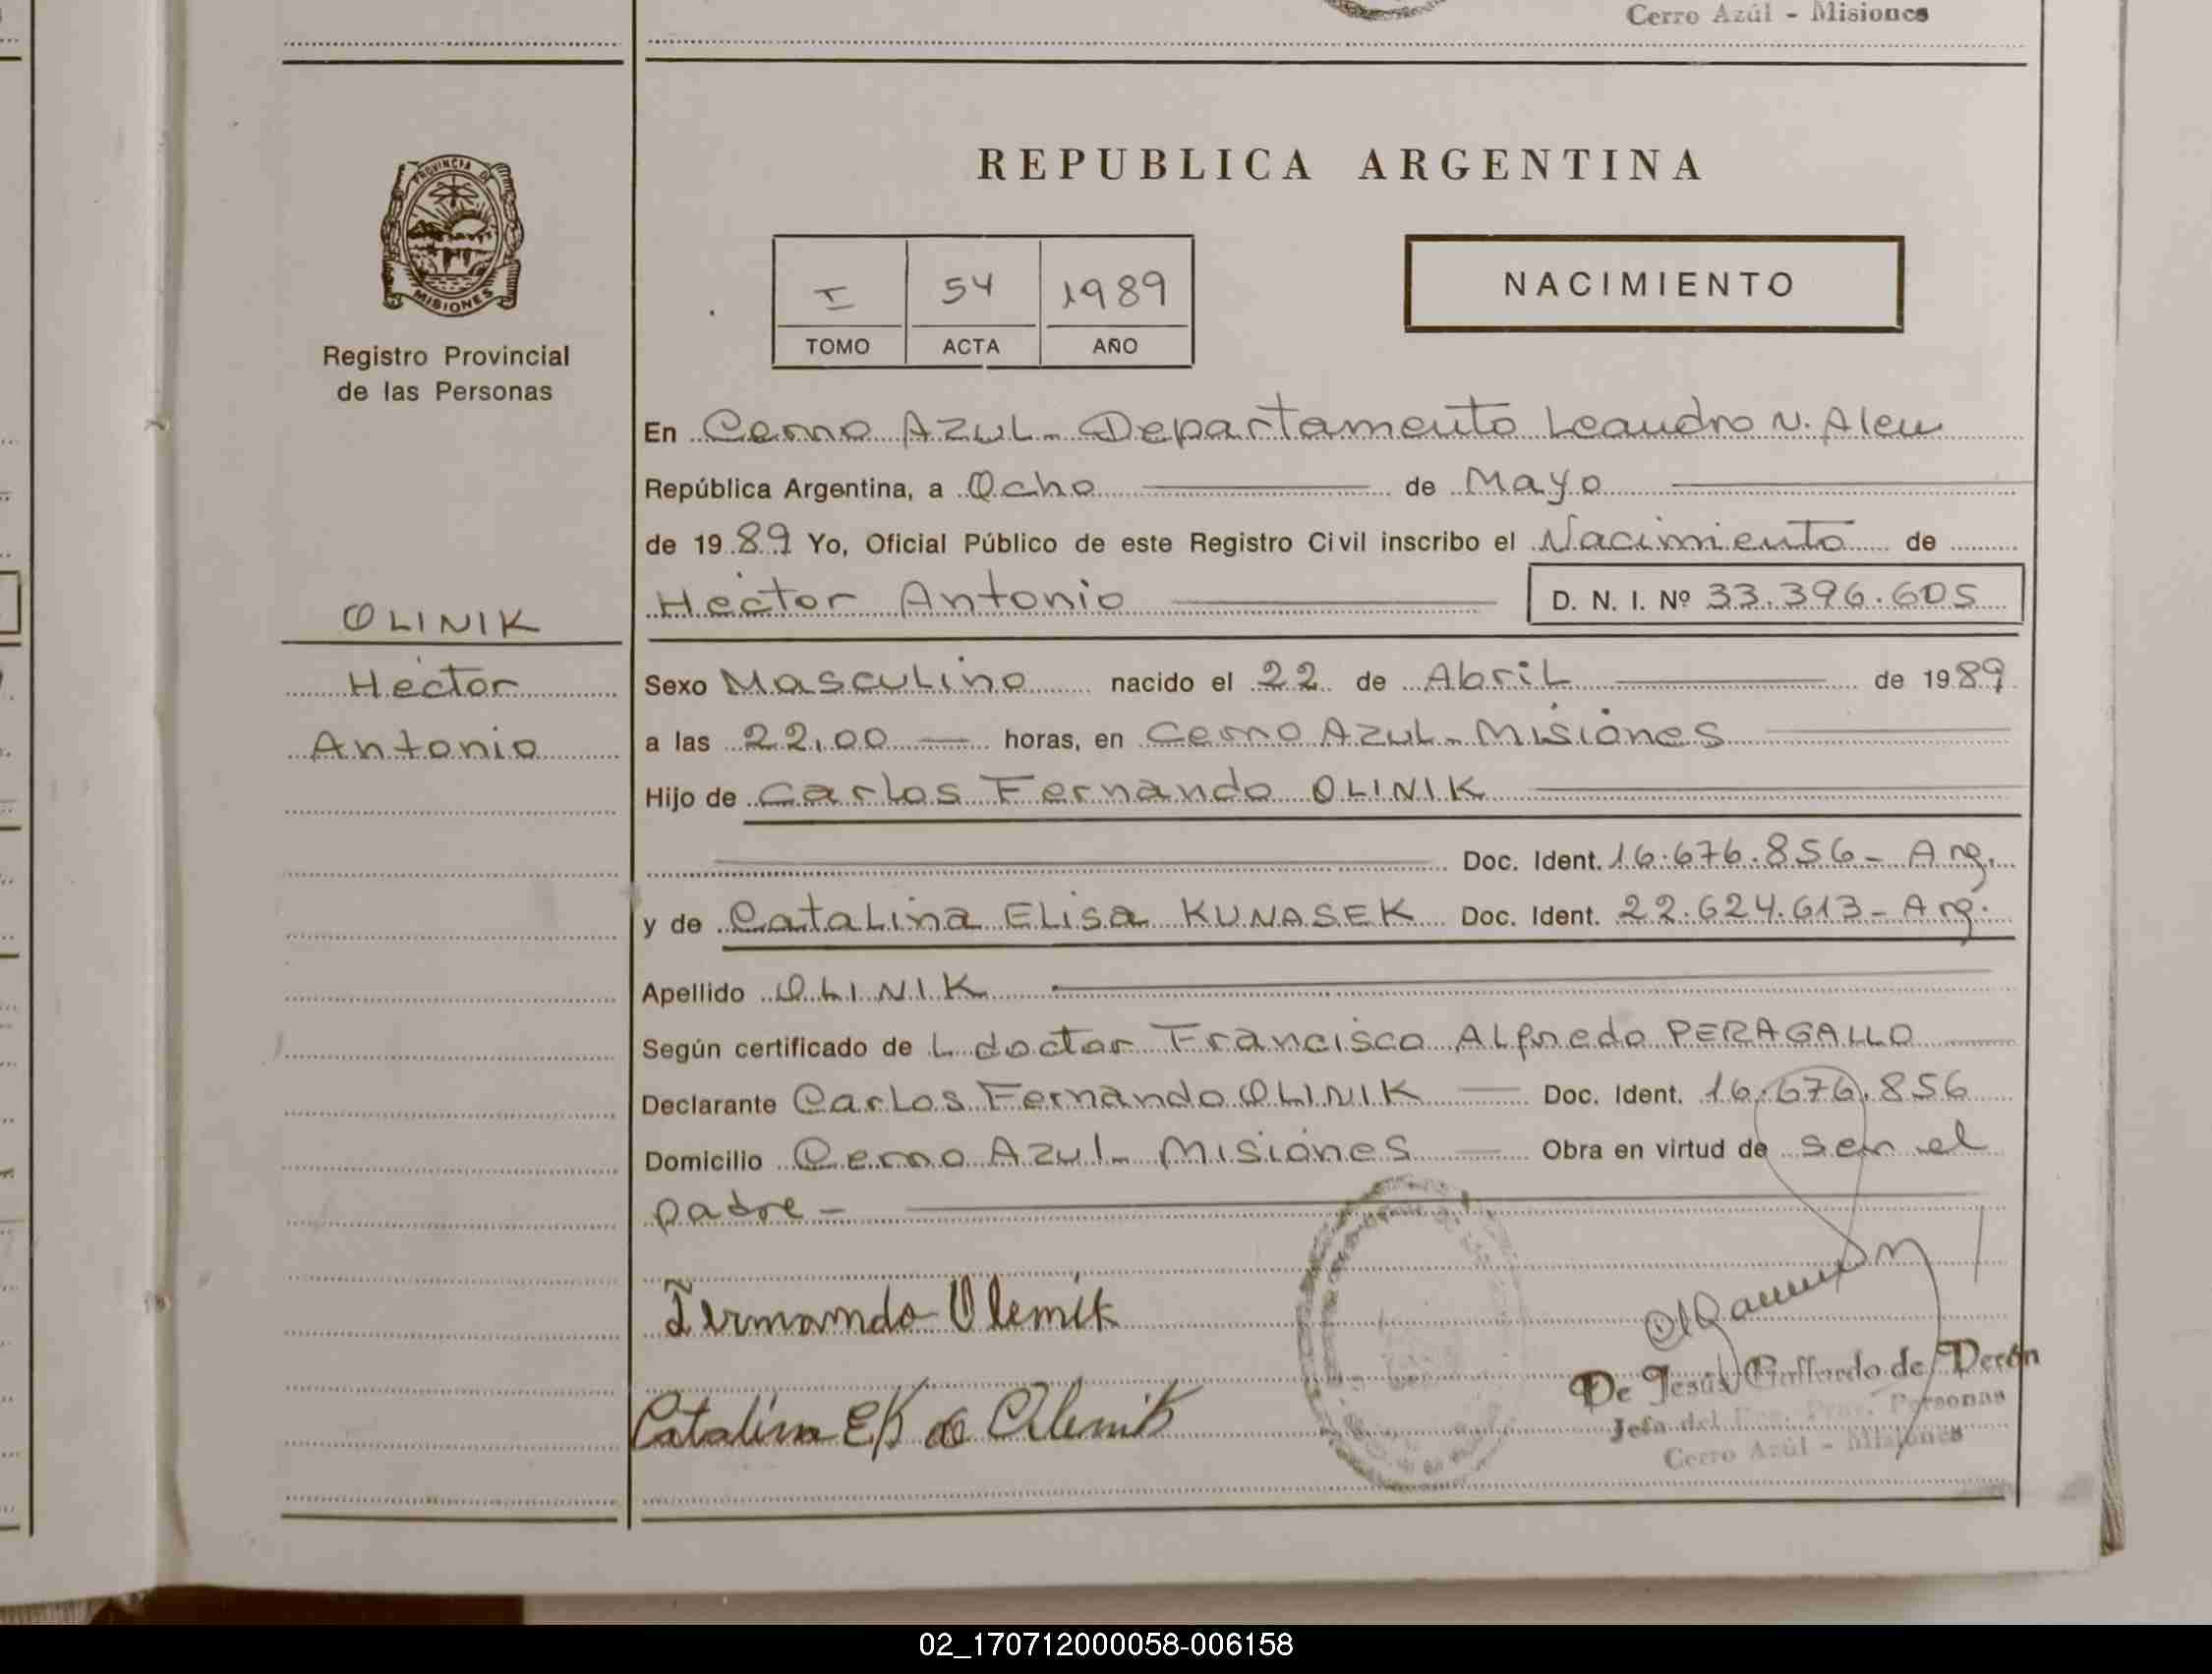 Cerro Azúl - Misiones
PROVINCIA DE
MISIONES
Registro Provincial
de las Personas
OLINIK
Hector
Antonio
REPUBLICA ARGENTINA
I 54 1989
TOMO ACTA AÑO
NACIMIENTO
En Cerro AZUL - Departamento Leandro N. Alem
República Argentina, a Ocho de Mayo
de 1989 Yo, Oficial Público de este Registro Civil inscribo el Nacimiento de
Hector Antonio D. N. I. Nº 33.396.605
Sexo Masculino nacido el 22 de Abril de 1989
a las 22,00 horas, en Cerro AZUL - Misiones
Hijo de Carlos Fernando OLINIK
Doc. Ident. 16.676.856 - Arg.
y de Catalina Elisa KUNASEK Doc. Ident. 22.624.613 - Arg.
Apellido OLINIK
Según certificado de L doctor Francisco Alfredo PERAGALLO
Declarante Carlos Fernando OLINIK Doc. Ident. 16.676.856
Domicilio Cerro Azul - Misiones Obra en virtud de ser el
padre -
Fernando Olenik
Catalina EK de Olenik
De Jesús Gallardo de Perón
Jefa del Reg. Prov. Personas
Cerro Azúl - Misiones
02_170712000058-006158